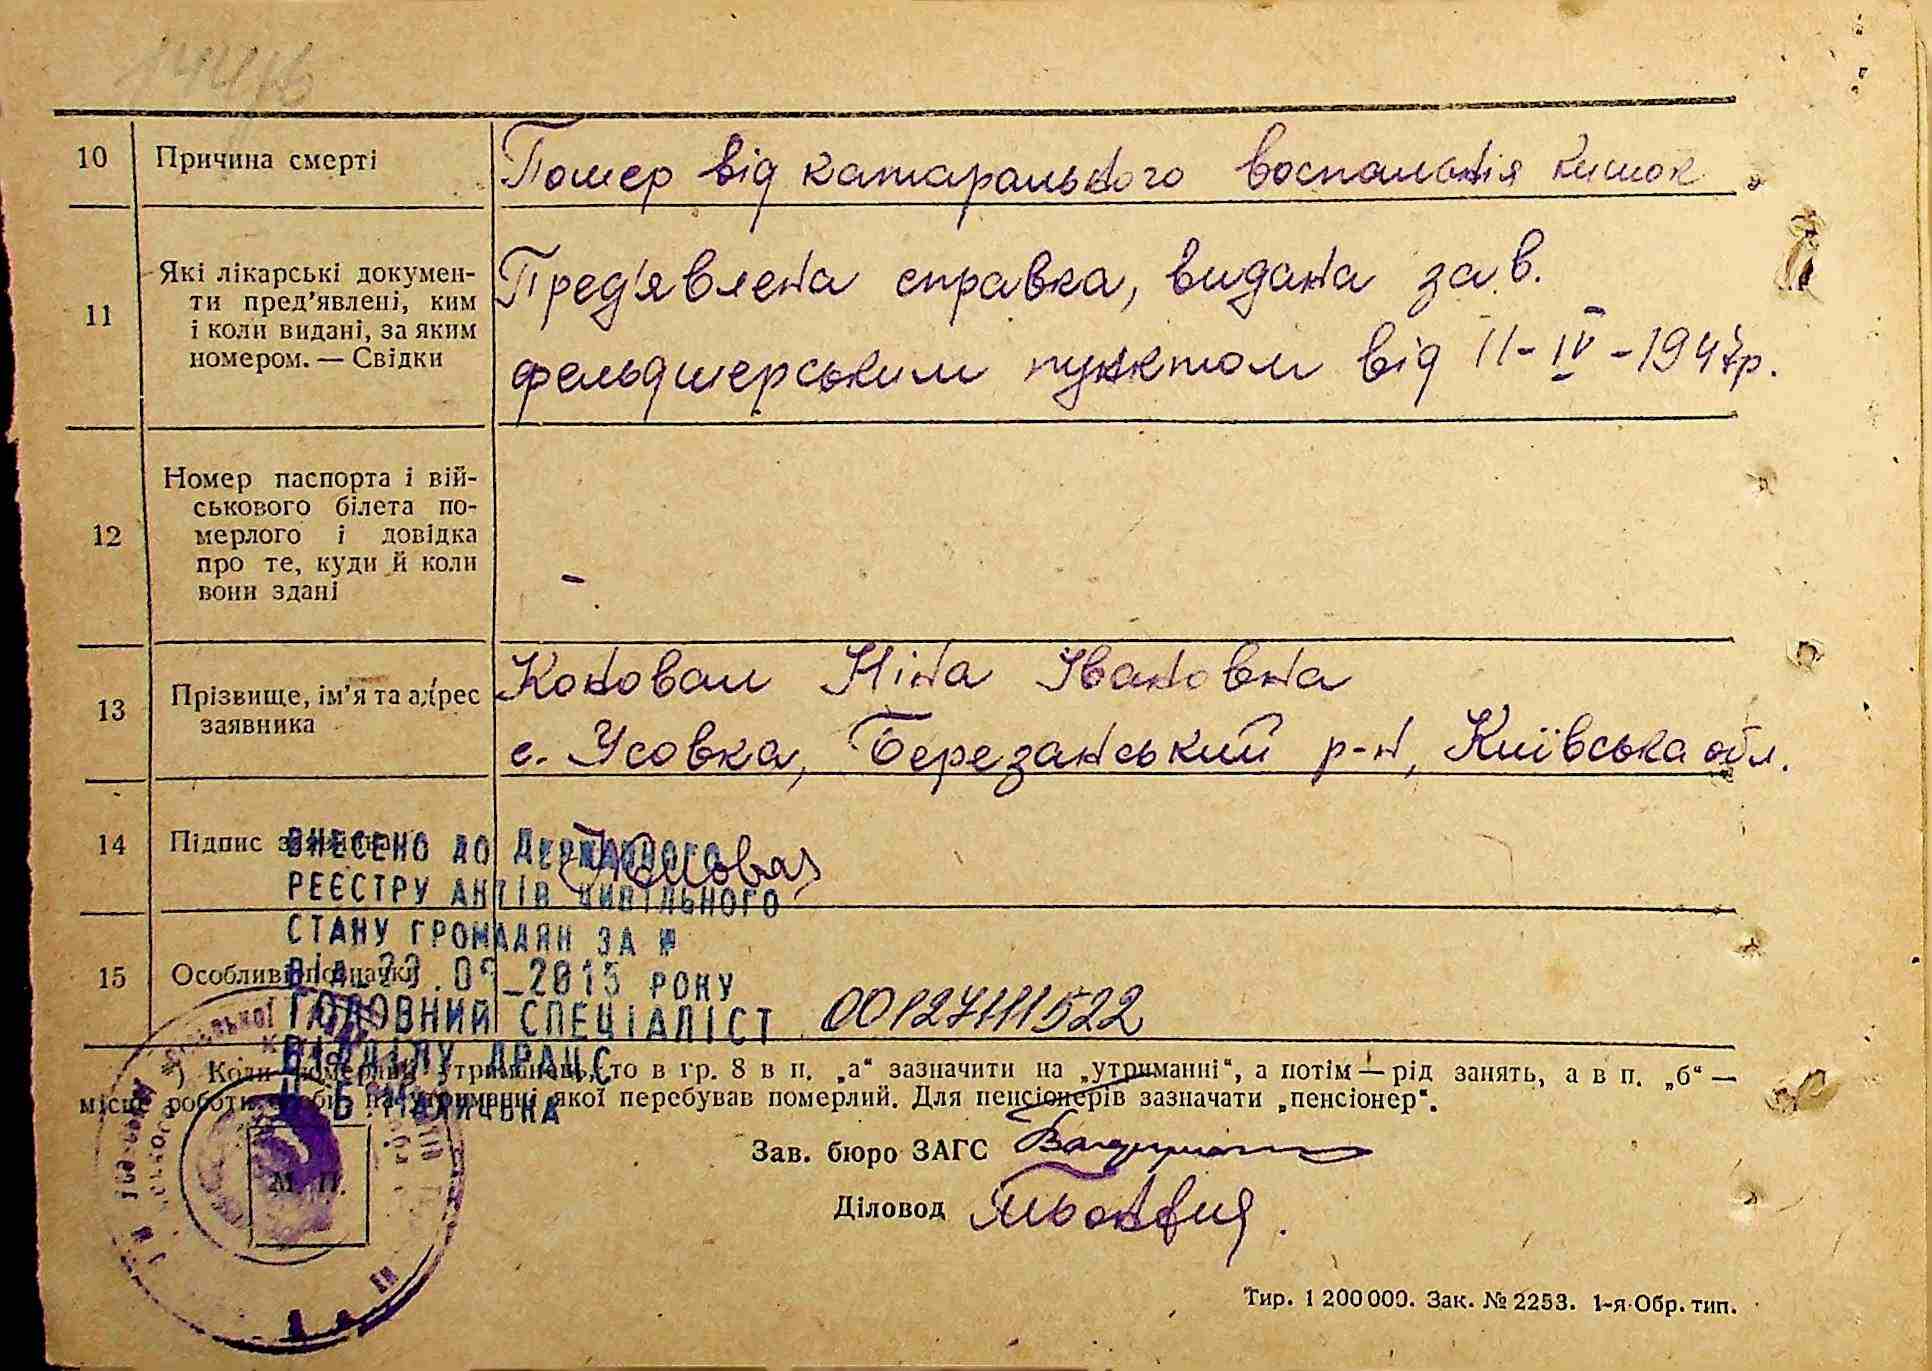 10 Причина смерті Помер від катарального воспаленія кишок
11 Які лікарські докумен-
ти пред’явлені, ким
і коли видані, за яким
номером. — Свідки
Пред'явлена справка, видана зав.
фельдшерським пунктом від 11-IV-1947р.
12 Номер паспорта і вій-
ськового білета по-
мерлого і довідка
про те, куди й коли
вони здані
-
13 Прізвище, ім’я та адрес
заявника
Коновал Ніна Івановна
с. Усовка, Березанський р-н, Київська обл.
14 Підпис заявника Коновал
ВНЕСЕНО ДО ДЕРЖАВНОГО
РЕЄСТРУ АКТІВ ЦИВІЛЬНОГО
СТАНУ ГРОМАДЯН ЗА №
15 Особливі позначки
ВІД 2015 РОКУ
ГОЛОВНИЙ СПЕЦІАЛІСТ 00127111522
ВІДДІЛУ ДРАЦС
) Коли померлий утриманець, то в гр. 8 в п. „а“ зазначити на „утриманні“, а потім — рід занять, а в п. „б“ —
місце роботи особи, на утриманні якої перебував померлий. Для пенсіонерів зазначати „пенсіонер“.
М. П.
Зав. бюро ЗАГС
Діловод
Тир. 1 200 000. Зак. № 2253. 1-я Обр. тип.